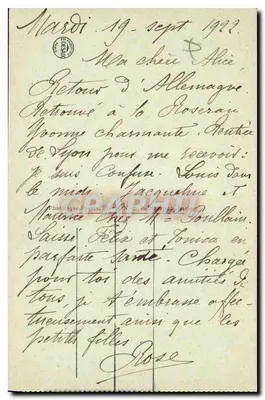 Mardi 19 sept 1922
Ma chère Alice
Retour d'Allemagne
Retrouvé à la Roseraie
Yvonne charmante. Rentrée
de Lyon pour me recevoir:
je suis confuse. Louis dans
le midi, Jacqueline et
Maurice chez Mme Poullain.
Laissé Félix et en
parfaite santé. Chargée
pour toi des amitiés de
tous, je t'embrasse affec-
tueusement ainsi que les
petites filles
Rose